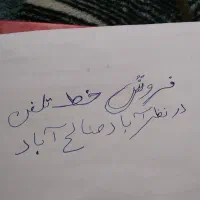 فروش خط تلفن
در نظرآباد صالح آباد